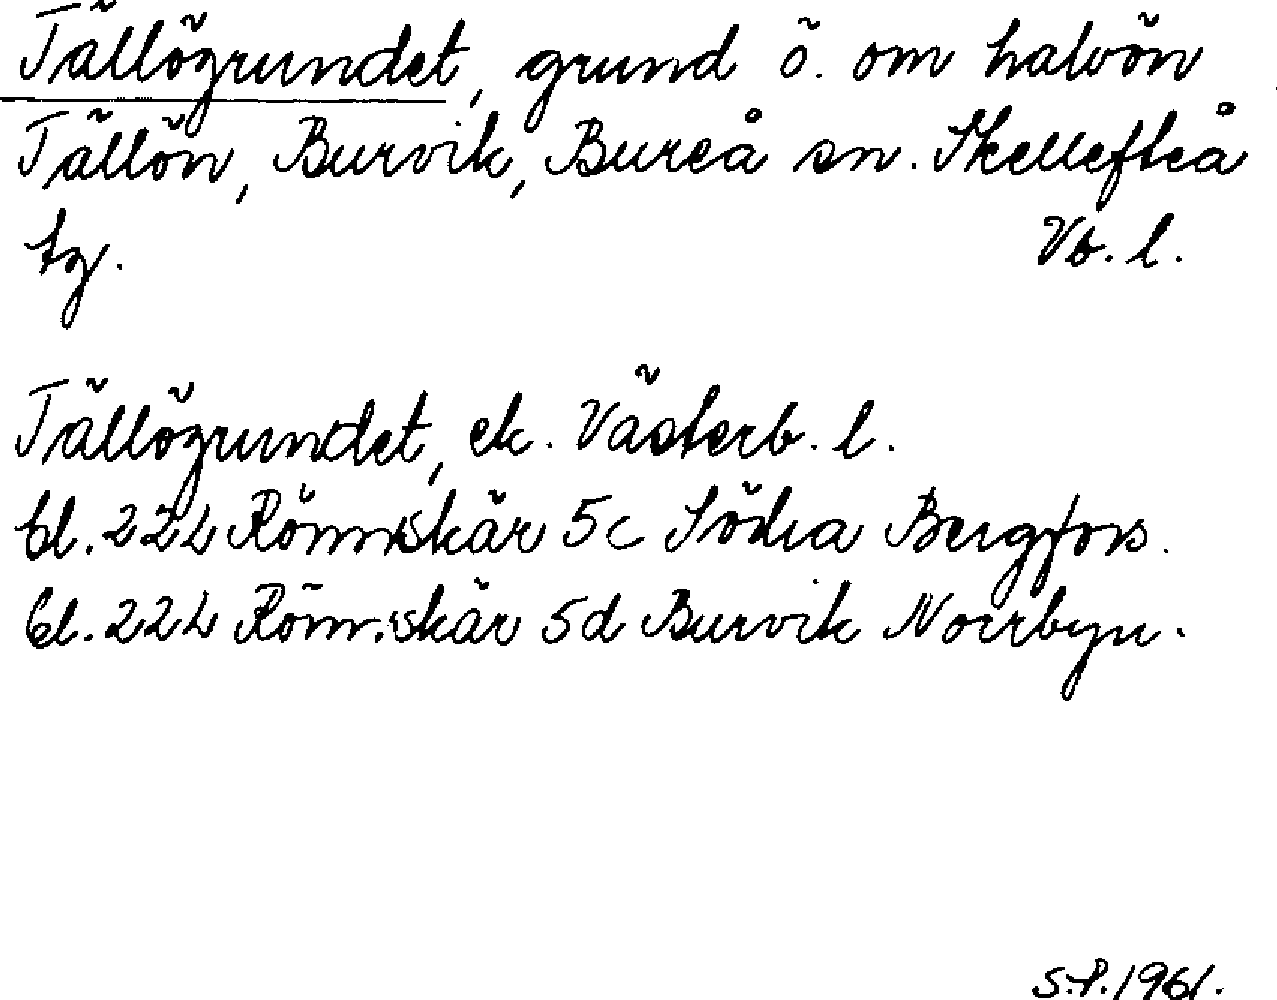 Tällögrundet, grund ö. om halvön
Tällön, Burvik, Bureå sn. Skellefteå
tg. Vb. l.
Tällögrundet, ek. Västerb. l.
bl. 22L Rönnskär 5c Södra Bergfors.
bl. 22L Rönnskär 5d Burvik Norrbyn.
S.P. 1961.